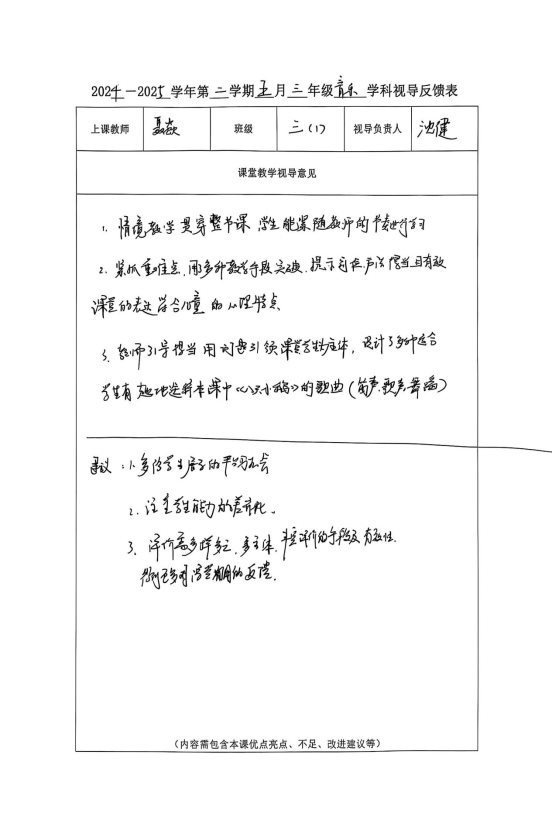 2024-2025学年第二学期五月三年级音乐学科视导反馈表
上课教师 聂焱 班级 三(1) 视导负责人 沈健
课堂教学视导意见
1. 情境教学贯穿整节课 学生能紧跟教师的节奏进行学习
2. 紧抓重难点,用多种教学手段突破,提示到位 方法得当且有效
课堂的表达符合儿童的心理特点
3. 教师引导得当 用问导引领课堂学生主体,设计多种适合
学生有趣地选择本课中《八只小鹅》的歌曲(笛声,歌声,舞蹈)
建议:1. 多给学生展示的平台与机会
2. 注意学生能力的差异化。
3. 评价需多样多元,多主体,评价的手段及有效性.
的反馈.
(内容需包含本课优点亮点、不足、改进建议等)